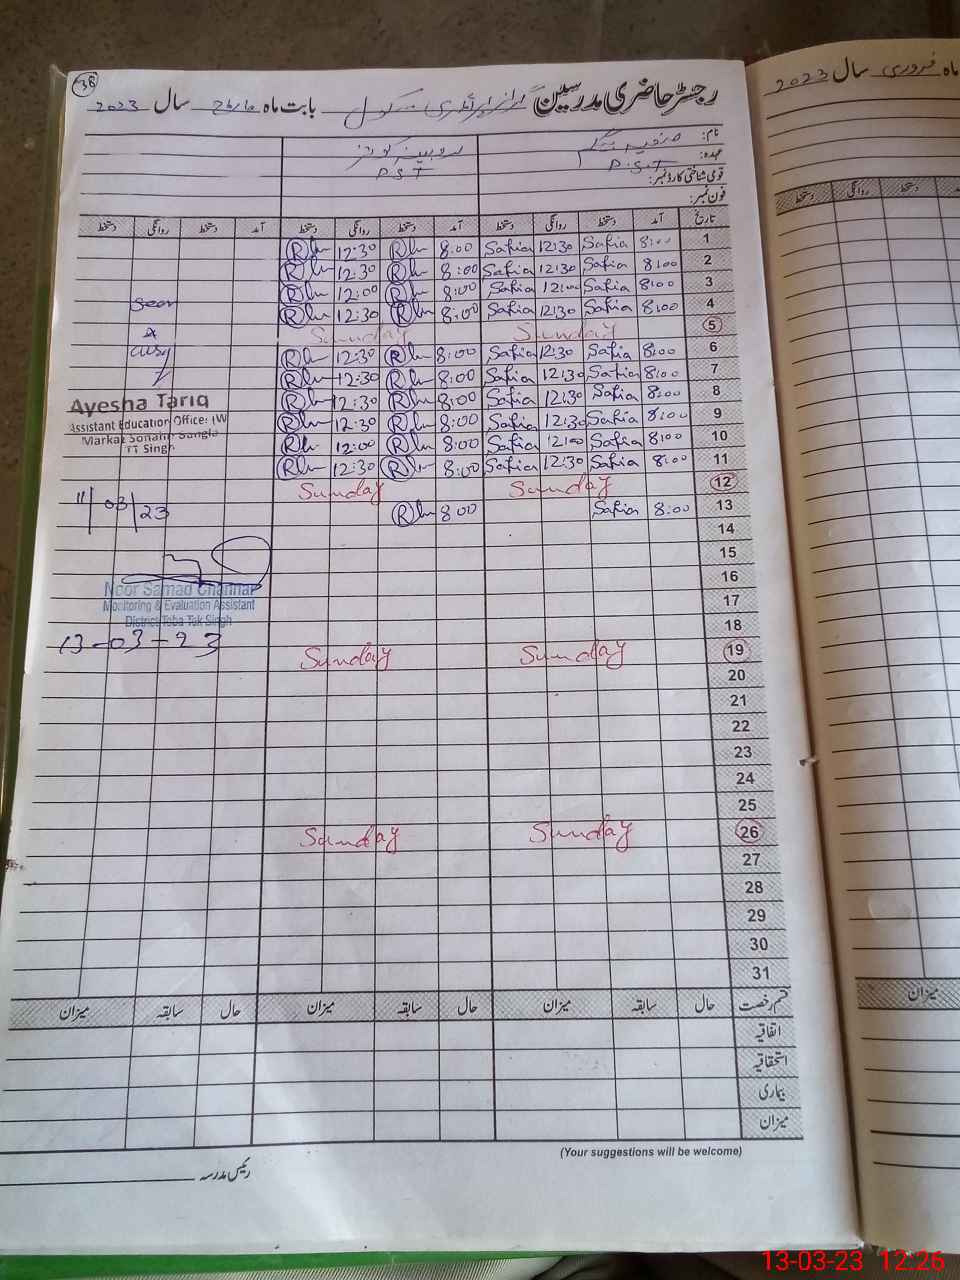 38
رجسٹر حاضری مدرسین گرلز پرائمری سکول بابت ماہ مارچ سال 2023
نام: صفیہ بیگم روبینہ کوثر
عہدہ: P.S.T P.S.T
قومی شناختی کارڈ نمبر:
فون نمبر:
تاریخ آمد دستخط روانگی دستخط آمد دستخط روانگی دستخط آمد دستخط روانگی دستخط
1 8:00 Safia 12:30 Safia 8:00 12:30
2 8:00 Safia 12:30 Safia 8:00 12:30
3 8:00 Safia 12:00 Safia 8:00 12:00
4 8:00 Safia 12:30 Safia 8:00 12:30 Seen
5 Sunday Sunday
6 8:00 Safia 12:30 Safia 8:00 12:30
7 8:00 Safia 12:30 Safia 8:00 12:30
8 8:00 Safia 12:30 Safia 8:00 12:30
9 8:00 Safia 12:30 Safia 8:00 12:30
10 8:00 Safia 12:00 Safia 8:00 12:00
11 8:00 Safia 12:30 Safia 8:00 12:30
12 Sunday Sunday
13 8:00 Safia 8:00
14
15
16
17
18
19 Sunday Sunday
20
21
22
23
24
25
26 Sunday Sunday
27
28
29
30
31
Ayesha Tariq
Assistant Education Officer: (W)
Markaz
TT Singh
11/03/23
Noor Samad Channar
Monitoring & Evaluation Assistant
District Toba Tek Singh
13-03-23
قسم رخصت حال سابقہ میزان حال سابقہ میزان حال سابقہ میزان
اتفاقیہ
استحقاقیہ
بیماری
میزان
(Your suggestions will be welcome)
رئیس مدرسہ
ماہ فروری سال 2023
دستخط روانگی دستخط
میزان
13-03-23 12:26